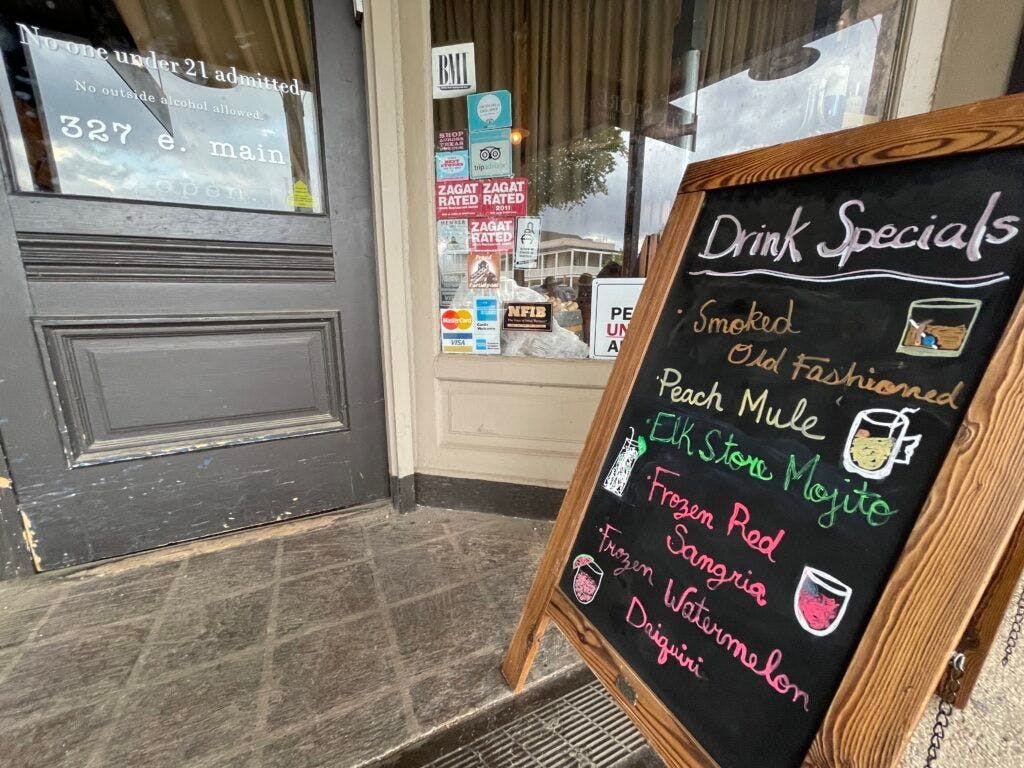 No one under 21 admitted.
No outside alcohol allowed.
327 e. main
open
BMI
SHOP
ACROSS
TEXAS
tripadvisor
ZAGAT
RATED
ZAGAT
RATED
2011
MEMBER
ZAGAT
RATED
MasterCard
VISA
Cards
Welcome
NFIB
PE
UN
A
Drink Specials
· Smoked
Old Fashioned
· Peach Mule
· Elk Store Mojito
· Frozen Red
Sangria
· Frozen Watermelon
Daiquiri